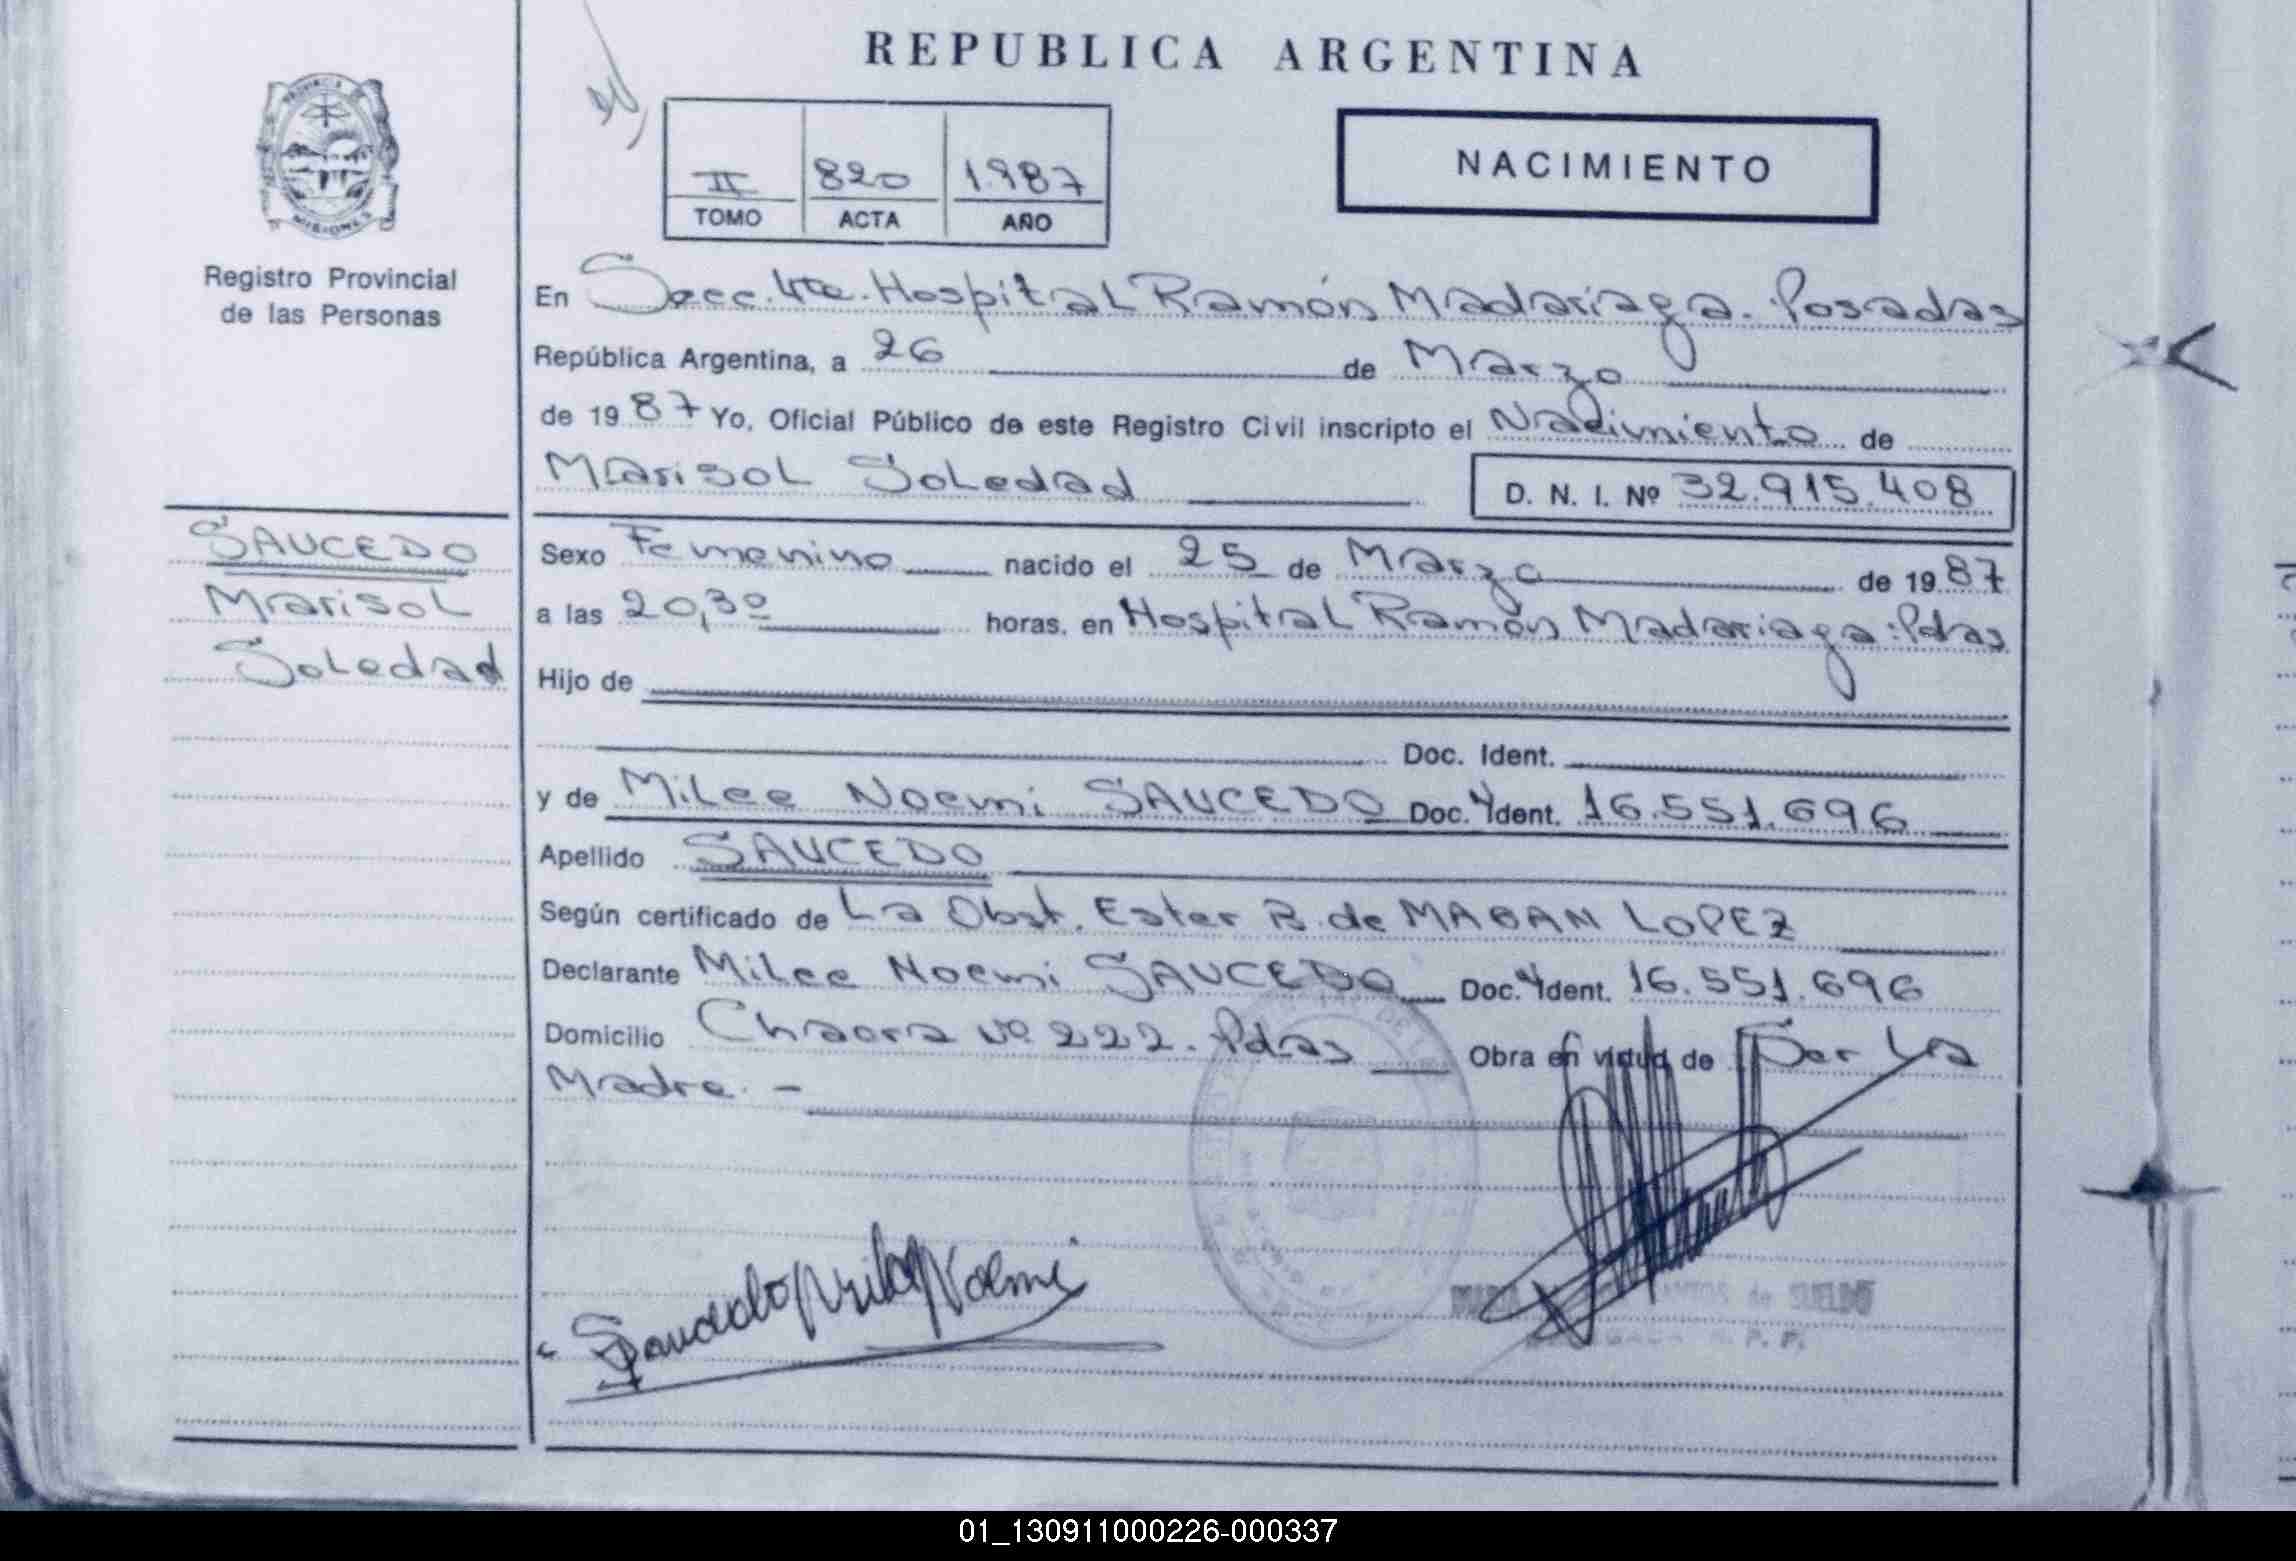 REPUBLICA ARGENTINA
PROVINCIA DE
MISIONES
Registro Provincial
de las Personas
II 820 1.987
TOMO ACTA AÑO
NACIMIENTO
En Secc. 4ta. Hospital Ramón Madariaga. Posadas
República Argentina, a 26 de Marzo
de 1987 Yo, Oficial Público de este Registro Civil inscripto el Nacimiento de
Marisol Soledad D. N. I. Nº 32.915.408
SAUCEDO
Marisol
Soledad
Sexo Femenino nacido el 25 de Marzo de 1987
a las 20,30 horas. en Hospital Ramón Madariaga. Pdas
Hijo de
Doc. Ident.
y de Milce Noemi SAUCEDO Doc. Ident. 16.551.696
Apellido SAUCEDO
Según certificado de La Obst. Ester B. de MABAN LOPEZ
Declarante Milce Noemi SAUCEDO Doc. Ident. 16.551.696
Domicilio Chacra Nº 222. Pdas Obra en virtud de Ser La
Madre. -
Saucedo Milce Noemi
de SUELDO
R. P. P.
01_130911000226-000337